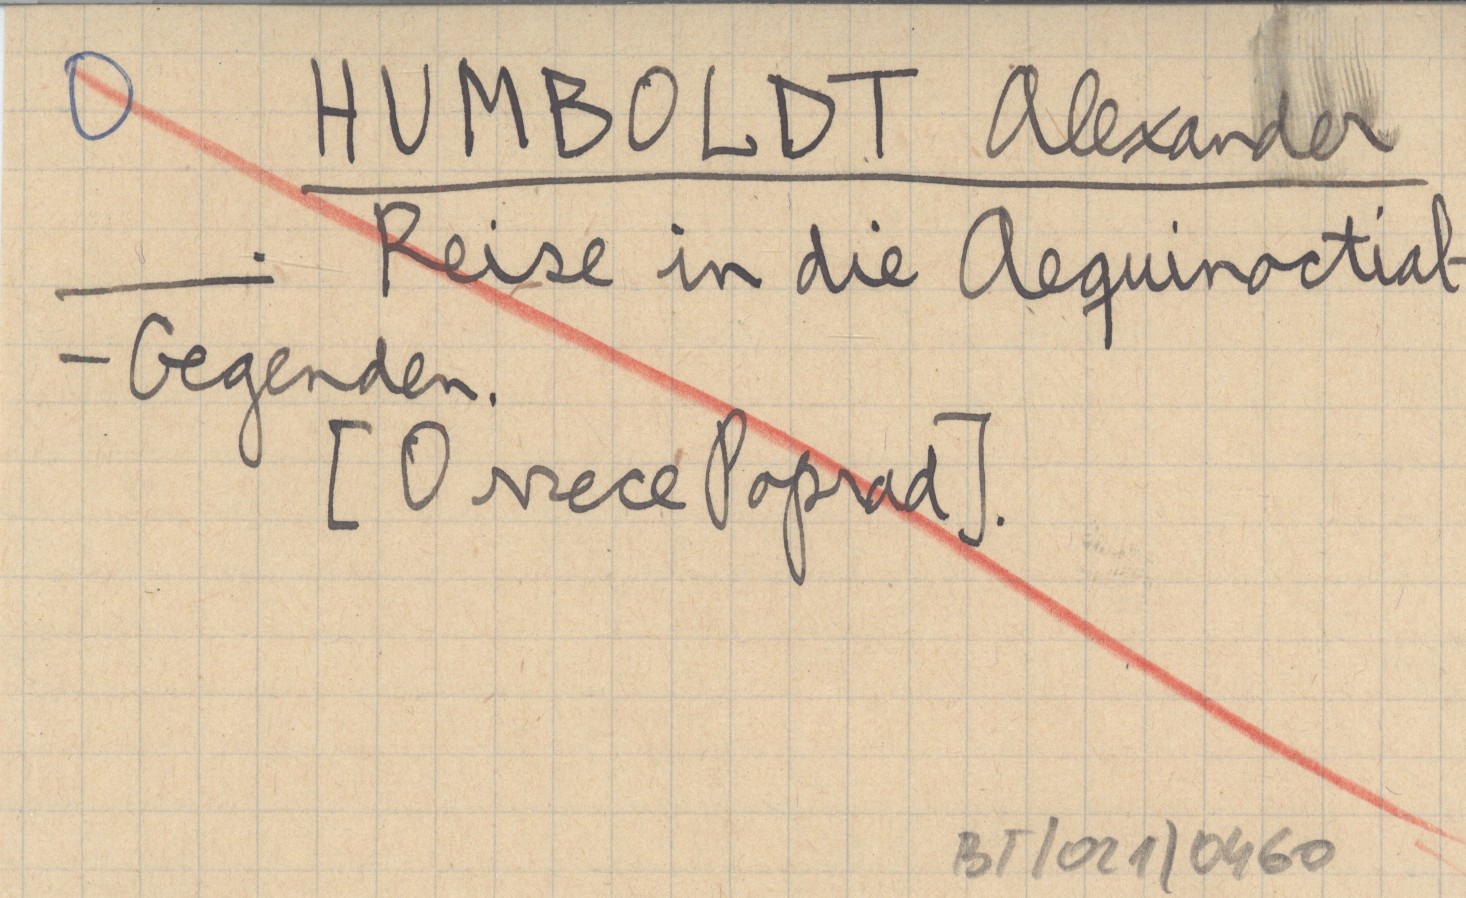 O HUMBOLDT Alexander
. Reise in die Aequinoctial-
- Gegenden.
[O rzece Poprad].
BT/021/0460